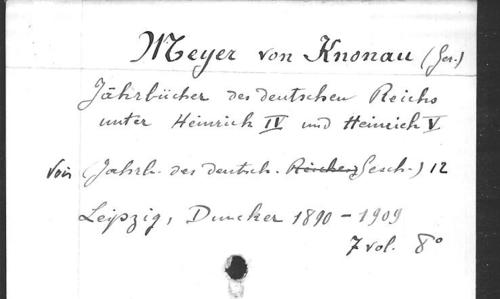 Meyer von Knonau (Ger.)
Jährbücher des deutschen Reichs
unter Heinrich IV und Heinrich V
Voir (Jahrb. des deutsch. Reiches) Gesch.) 12
Leipzig, Duncker 1890-1909
7 vol. 8°